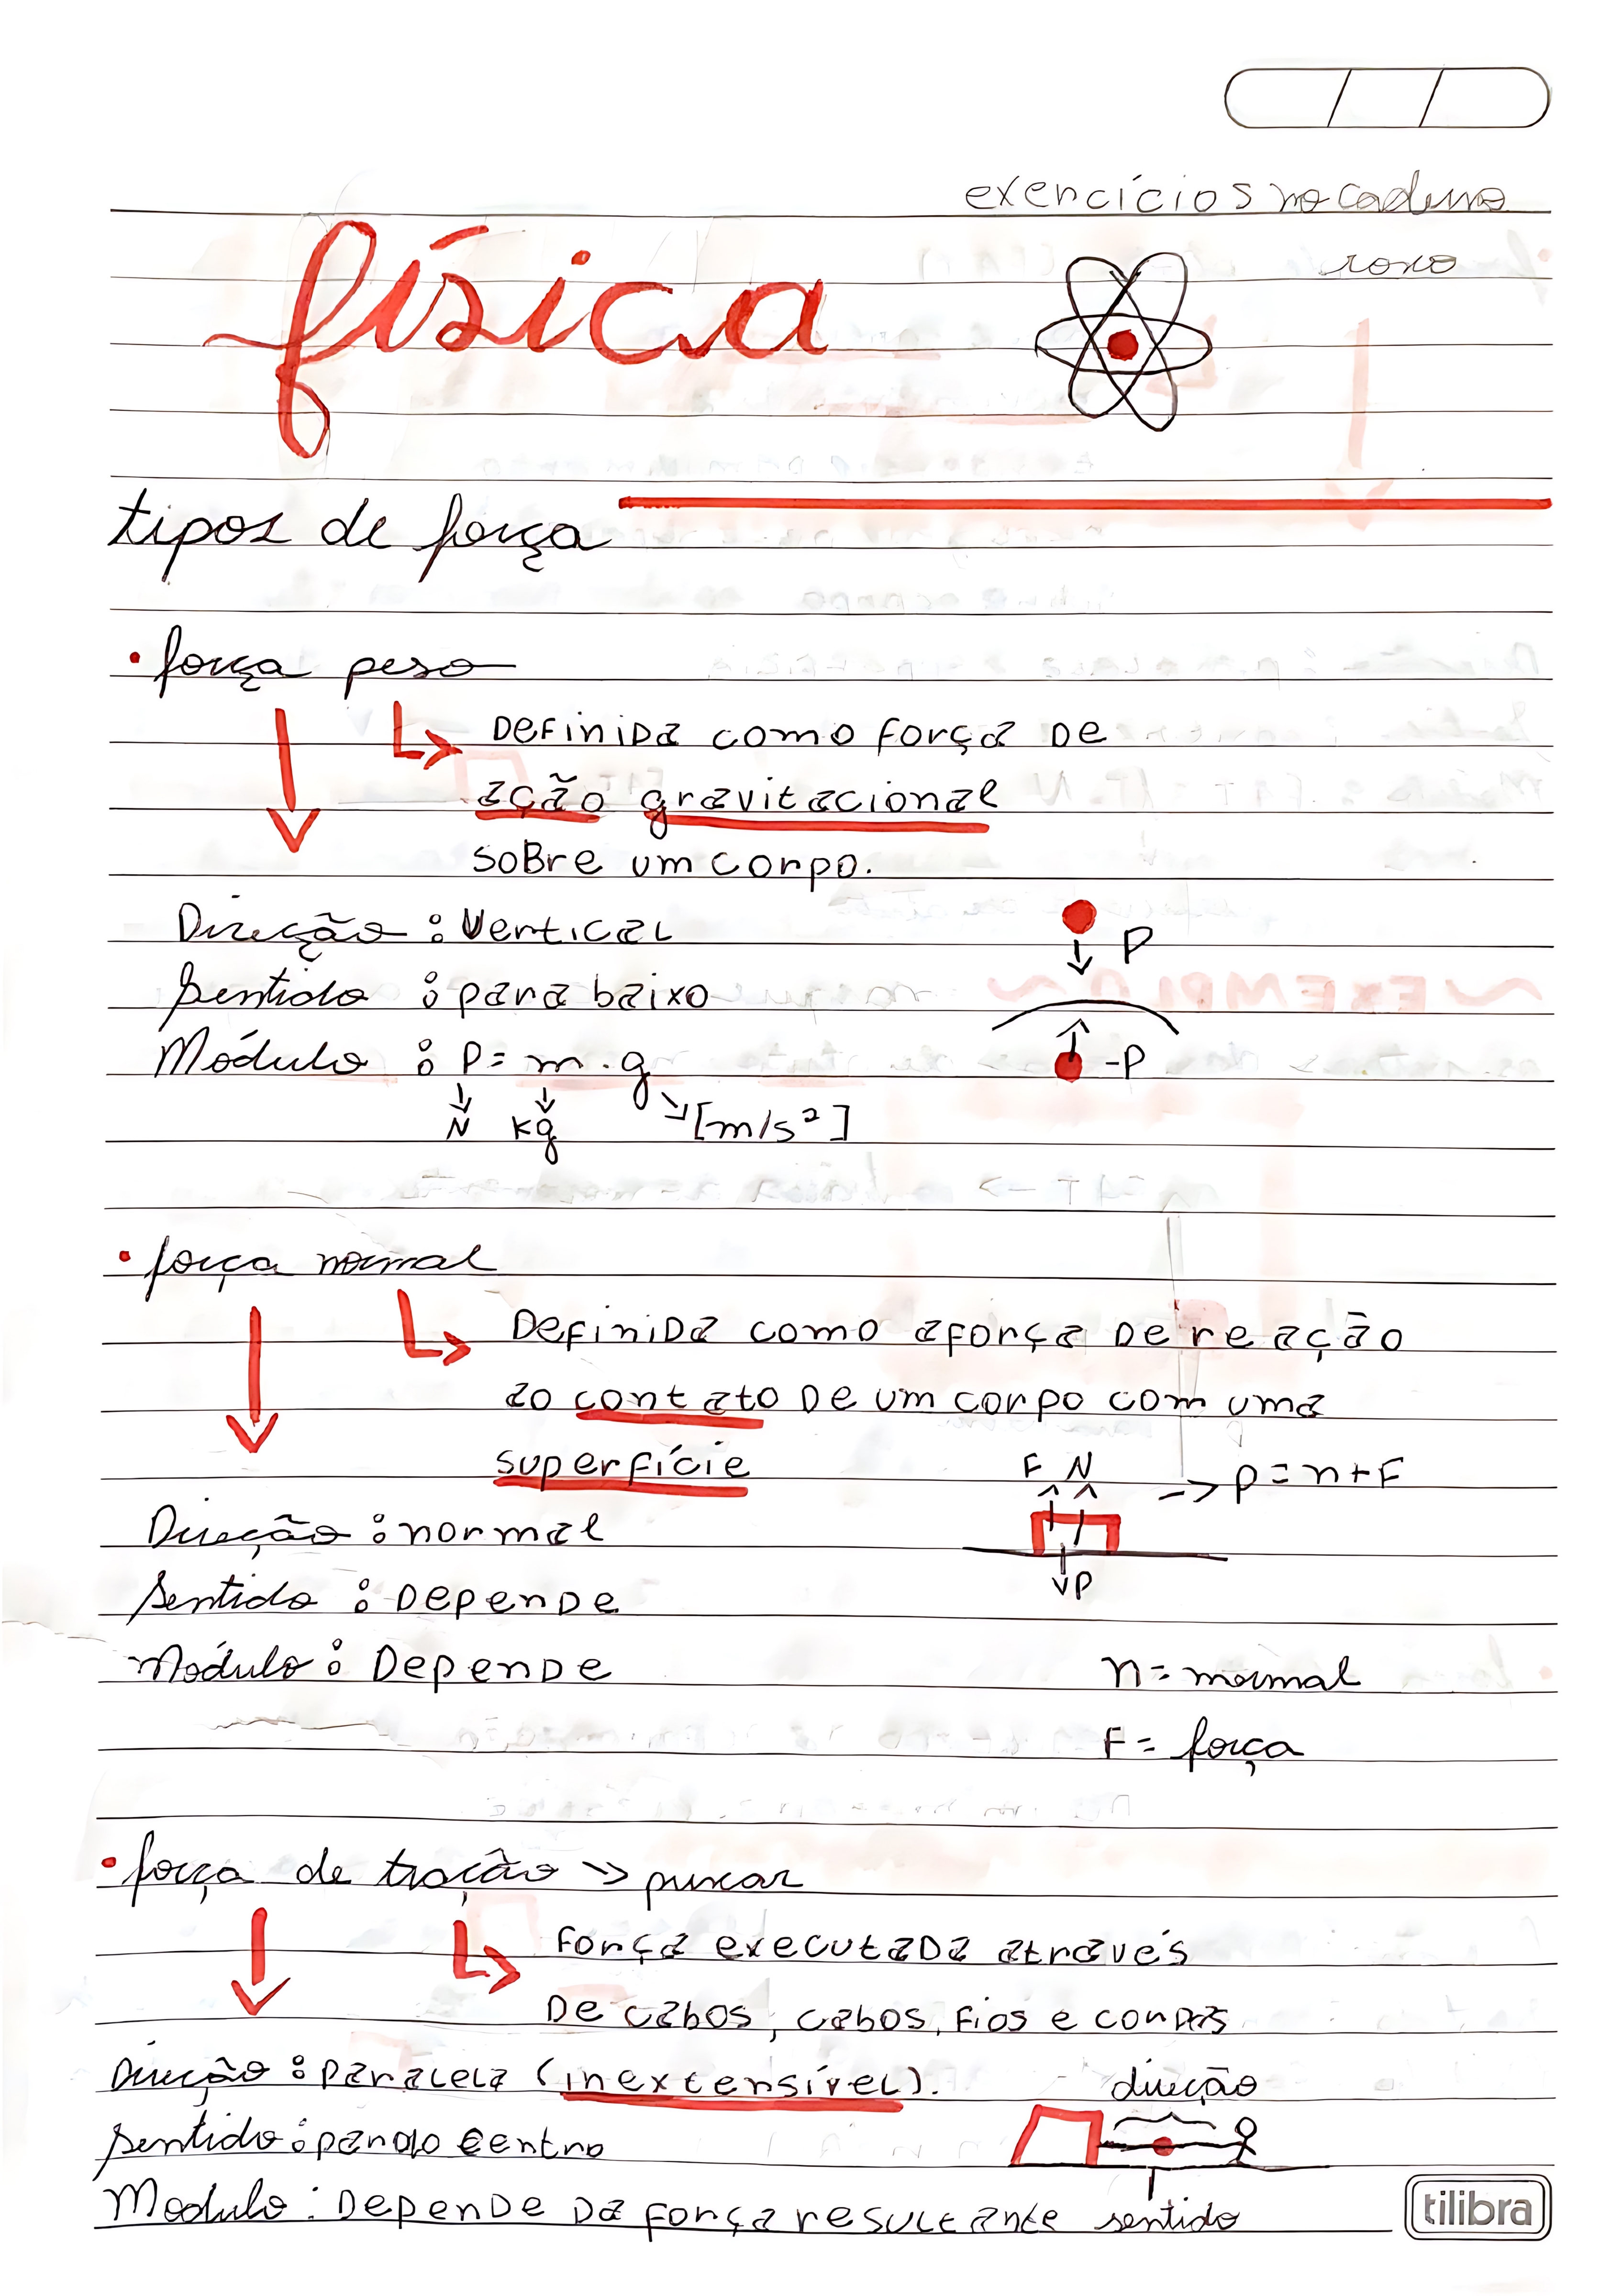 exercícios no caderno
roxo
física
tipos de força
• força peso
Definida como força de
ação gravitacional
sobre um corpo.
Direção : Vertical
Sentido : para baixo
Módulo : P = m . g
N kg [m/s²]
P
-P
• força normal
Definida como a força de reação
ao contato de um corpo com uma
superfície
F N -> p = n + F
P
Direção : normal
Sentido : Depende
Módulo : Depende
n = normal
F = força
• força de tração -> puxar
Força executada através
de cabos, cabos, fios e cordas
Direção : paralela (inextensível).
direção
Sentido : para o centro
Modulo : Depende da força resultante
sentido
tilibra